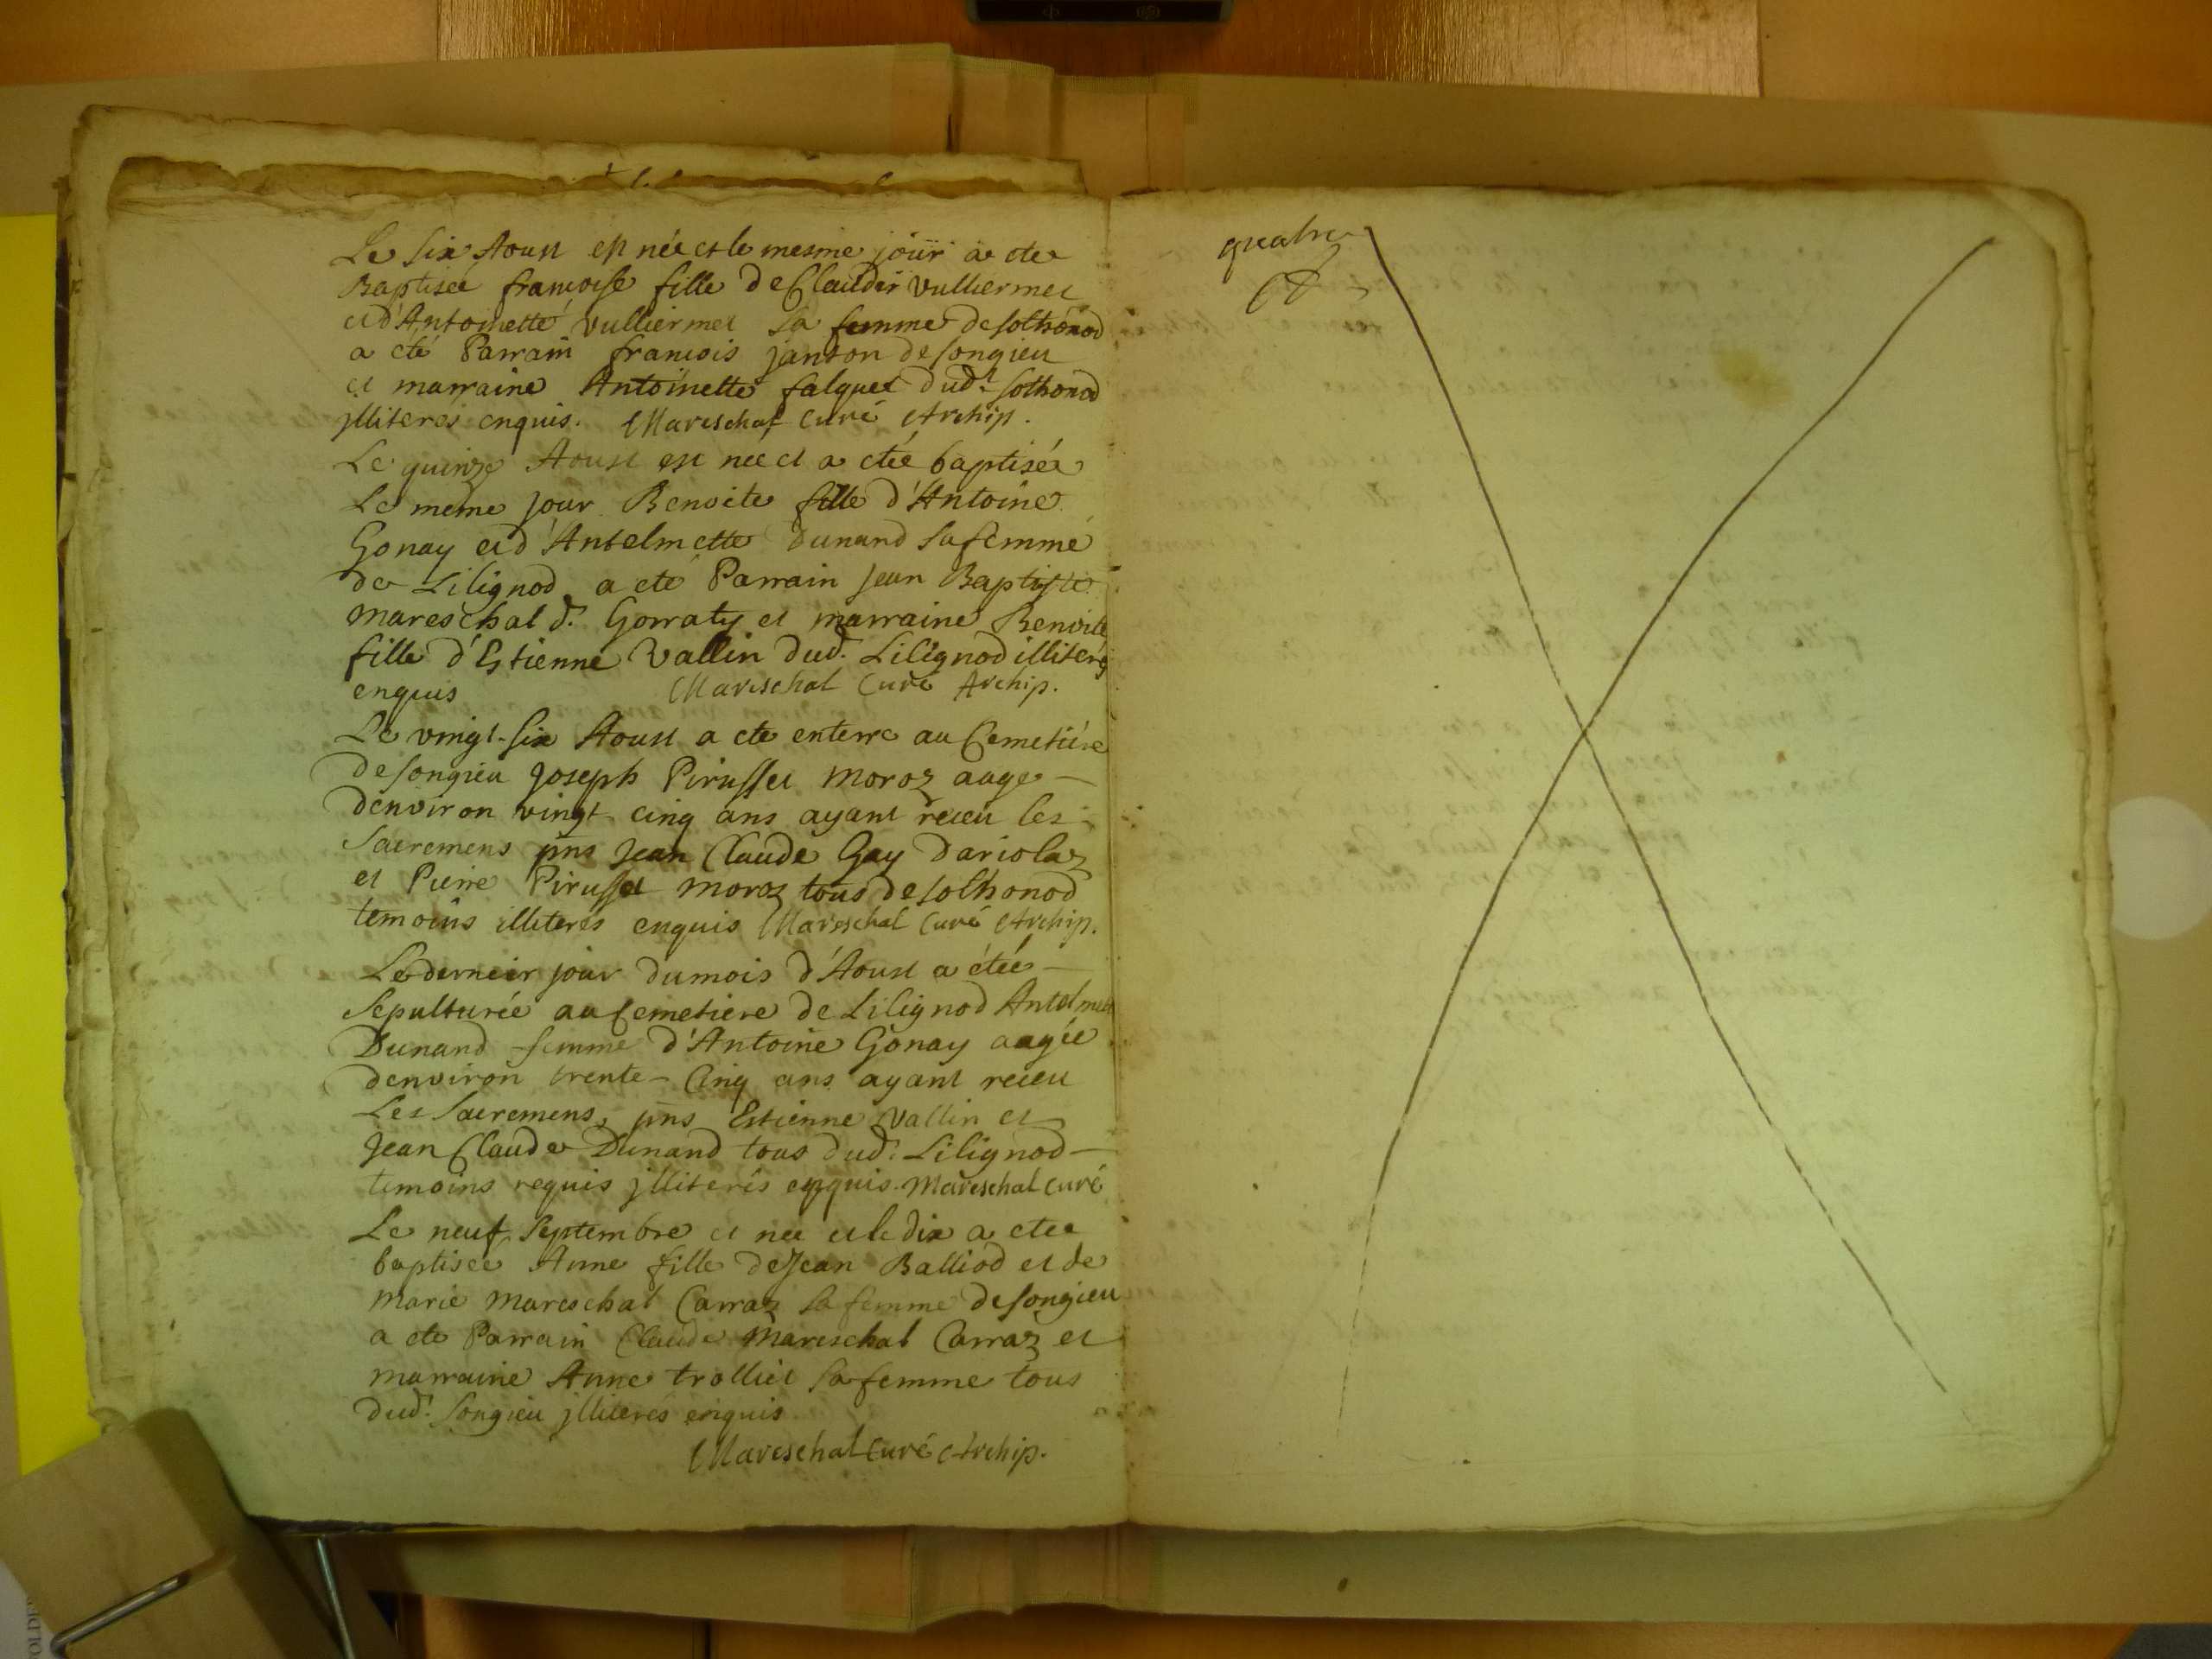 Le six Aoust est née et le mesme joür a etee
Baptisée francoise fille de Claudei Vulliermet
et d'Antoinette Vulliermet sa femme de solthonod
a eté Parrain francois janton de songieu
et marraine Antoinette falquet dud.t sothonod
jlliteres enquis. Mareschal Curé Archip.
Le quinze Aoust est nee et a etée baptisée
Le meme jour Benoite fille d'Antoine
Gonay et d'Antelmette Dunand sa femme
de Lilignod, a eté Parrain Jean Baptiste
mareschal d. Gorraty et marraine Benoite
fille d'Estienne Vallin dud. Lilignod illiterés
enquis Mareschal Curé Archip.
Le vingt-six Aoust a ete enterre au Cemetiére
de songieu Joseph Pirusset moroz aage
denviron vingt cinq ans ayant receu les
Sacremens pns Jean Claude Gay Dariolaz
et Pierre Pirusset moroz tous de solthonod
temoins illiterés enquis Mareschal Curé Archip.
Le derneir jour du mois d'Aoust a étée
Sepulturée au Cemetiere de Lilignod Antelmett
Dunand femme d'Antoine Gonay aagée
denviron trente-Cinq ans ayant receu
Les Sacremens, pns Estienne Vallin et
Jean Claude Dunand tous dud. Lilignod
temoins requis jlliterés enquis. Mareschal curé
Le neuf Septembre et nee et le dix a etee
baptisee Anne fille de Jean Balliod et de
marie mareschal Carraz sa femme de songieu
a ete Parrain Claude Mareschal Carraz et
marraine Anne trolliet sa femme tous
dud.t Songieu jlliterés enquis
Mareschal Curé Archip.
quatre